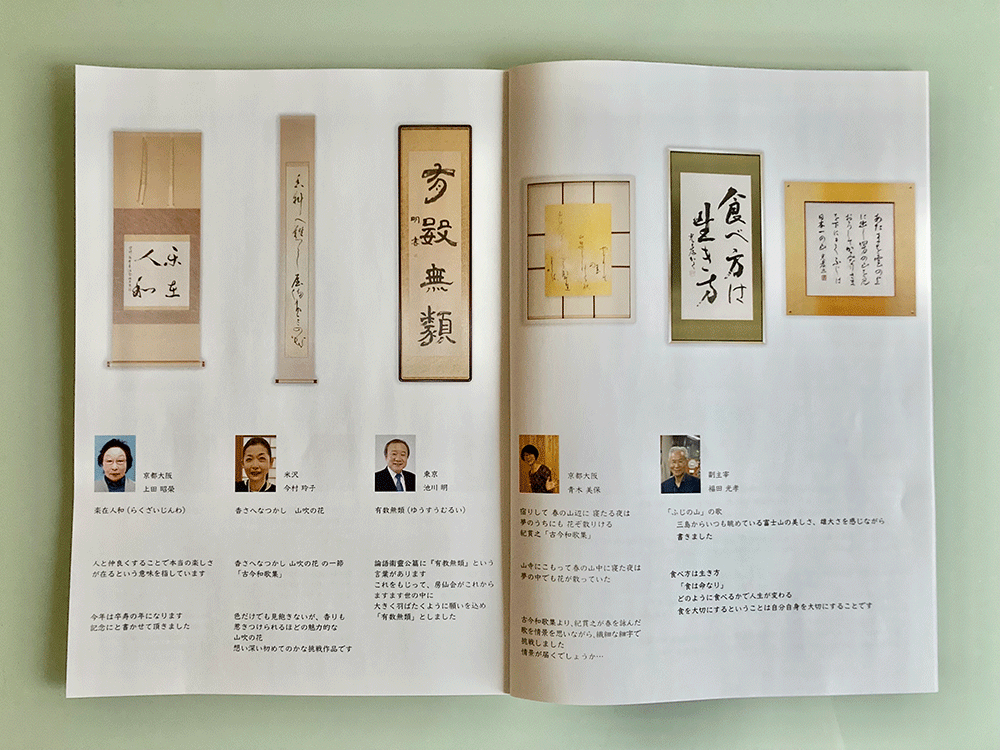 楽在
人和
有
數
無
類
明書
食べ方は
生き方
日本一の山
京都大阪
上田 昭榮
楽在人和（らくざいじんわ）
人と仲良くすることで本当の楽しさ
が在るという意味を指しています
今年は卒寿の年になります
記念にと書かせて頂きました
米沢
今村 玲子
香さへなつかし　山吹の花
香さへなつかし 山吹の花 の一節
「古今和歌集」
色だけでも見飽きないが、香りも
惹きつけられるほどの魅力的な
山吹の花
想い深い初めてのかな挑戦作品です
東京
池川 明
有数無類（ゆうすうむるい）
論語衛靈公篇に「有教無類」という
言葉があります
これをもじって、房仙会がこれから
ますます世の中に
大きく羽ばたくように願いを込め
「有数無類」としました
京都大阪
青木 美保
宿りして 春の山辺に 寝たる夜は
夢のうちにも 花ぞ散りける
紀貫之「古今和歌集」
山寺にこもって春の山中に寝た夜は
夢の中でも花が散っていた
古今和歌集より、紀貫之が春を詠んだ
歌を情景を思いながら、繊細な細字で
挑戦しました
情景が届くでしょうか…
副主宰
福田 光孝
「ふじの山」の歌
三島からいつも眺めている富士山の美しさ、雄大さを感じながら
書きました
食べ方は生き方
「食は命なり」
どのように食べるかで人生が変わる
食を大切にするということは自分自身を大切にすることです